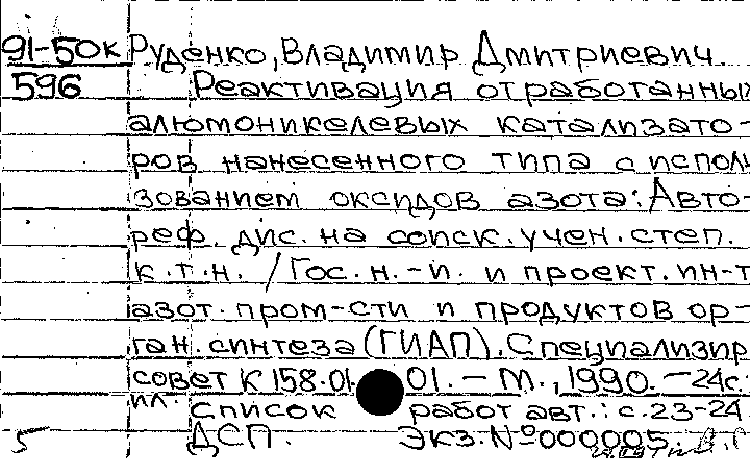 91-50к Руденко, Владимир Дмитриевич.
596 Реактивация отработанны
алюмоникелевых катализато-
ров нанесенного типа с исполь
зованием оксидов азота: Авто-
реф. дис. на соиск. учен. степ.
к.т.н. / Гос. н.-и. и проект. ин-т
азот. пром-сти и продуктов ор-
ган. синтеза (ГИАП). Специализир
совет К 158.01.01. - М., 1990. - 24с.
ил. Список работ авт.: с.23-24
5 ДСП. Экз. №000005.